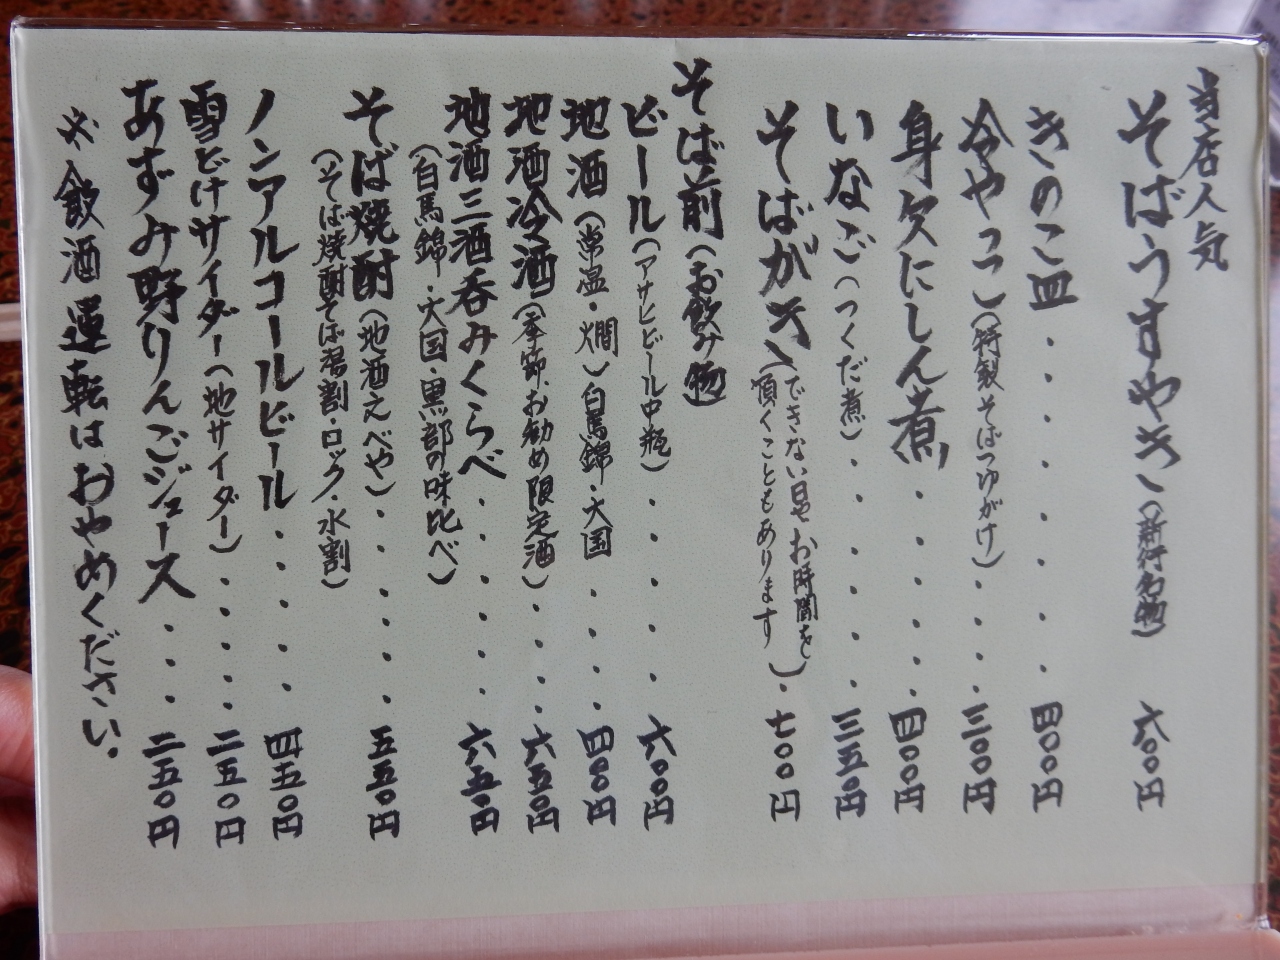 当店人気
そばうすやき(新行名物) 六〇〇円
きのこ皿・・・・・・・四〇〇円
冷やっこ(特製そばつゆがけ)・・・三〇〇円
身欠にしん煮・・・・・四〇〇円
いなご(つくだ煮)・・・・・三五〇円
そばがき(できない日やお時間を
頂くこともあります)・七〇〇円
そば前(お飲み物)
ビール(アサヒビール中瓶)・・・・・六〇〇円
地酒(常温・燗)白馬錦・大国・・・四〇〇円
地酒冷酒(季節、お勧め限定酒)・・・六五〇円
地酒三酒呑みくらべ・・・・・・六五〇円
(白馬錦・大国・黒部の味比べ)
そば焼酎(地酒えべや)・・・・・五五〇円
(そば焼酎そば湯割・ロック・水割)
ノンアルコールビール・・・・四五〇円
雪どけサイダー(地サイダー)・・・・・二五〇円
あずみ野りんごジュース・・・二五〇円
※飲酒運転はおやめください。